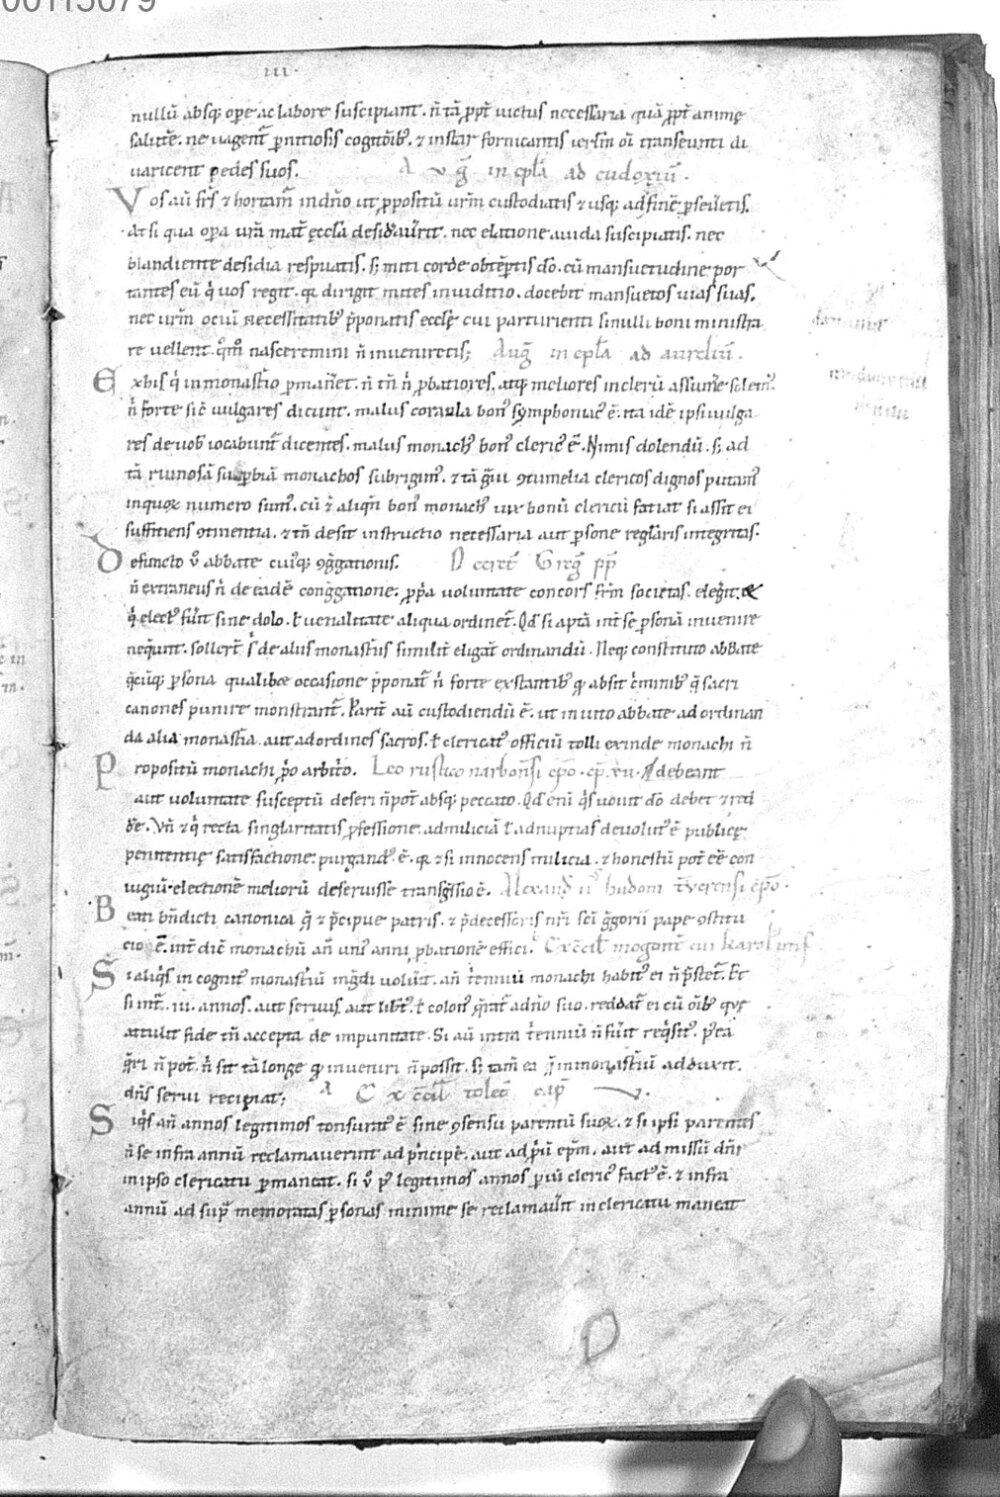 00115079
III.
nullū absq; ope ac labore suscipiant. ñ tā ꝓpt̄ uictus necessaria quā ꝓpt̄ animę
salutē. ne uagent̄ ꝑnitiosis cogitōib; & instar fornicantis ierl̄m oī transeunti di
uaricent pedes suos. Aug̃ in epl̄a ad eudoxiū.
Vos aū fr̄s & hortam̄ in dño ut ꝓpositū ur̄m custodiatis & usq; ad finē ꝑseuetis.
At si qua opa ur̄m mat̄ ęccl̄a desidauerit. nec elatione auida suscipiatis. nec
blandiente desidia respuatis. s; miti corde obtēꝑtis dō. cū mansuetudine por
tantes eū q̇ uos regit. qͥ dirigit mites in iuditio. docebit mansuetos uias suas.
nec ur̄m ociū necessitatib; p̄ponatis eccłę cui parturienti si nulli boni ministra
re uellent. qͦmͦ nasceremini ñ inueniretis; Aug̃ in epl̄a ad aureliū.
Ex his q̇ in monast̄io ꝑmanēt. ñ tñ ñ ꝓbatiores. atq; meliores in clerū assumē solem᷒.
ñ forte sic̄ uulgares dicunt. malus coraula bon᷒ symphoniac᷒ ē. ita idē ipsi uulga
res de uob᷒ iocabunt̄ dicentes. malus monach᷒ bon᷒ cleric᷒ ē. Nimis dolendū. s; ad
tā ruinosā suꝑbiā monachos subrigim᷒. & tā g̃ui ꝯtumelia clericos dignos putam᷒
in quoꝝ numero sum᷒. cū & aliqñ bon᷒ monach᷒ uix bonū clericū faciat si assit ei
suffitiens ꝯtinentia. & tñ desit instructio necessaria aut ꝑsone regłaris integritas.
Defuncto ů abbate cui᷒q; ꝯg̃gationis. Decret̄ Greg̃ pp̄
ñ extraneus ñ de eadē cong̃gatione. ꝓp̄a uoluntate concors fr̄m societas. elegit. &
q̇ elect᷒ fuit sine dolo. ł uenalitate aliqua ordinet̄. Qd̄ si aptā int̄ se ꝑsonā inuenire
neq̇unt. sollert̄ s̄ de aliis monast̄iis similit̄ eligāt ordinandū. Neq; constituto abbate
q̃cūq; ꝑsona qualibet occasione p̄ponat̄ ñ forte exstantib; qͥ absit c̄minib; q̃ sacri
canones punire monstrant̄. Parit̄ aū custodiendū ē. ut inuito abbate ad ordinan
da alia monast̄ia. aut ad ordines sacros. ł clericat᷒ officiū tolli exinde monachi ñ
Propositū monachi ꝓpo arbit̄o. Leo rustico narboñsi epō. cp̄. xii. debeant
aut uoluntate susceptū deseri ñ pot̄ absq; peccato. Qd̄ eni q̇s uouit dō debet & red
d̄e. Vñ & q̇ recta singlaritatis ꝓfessione. ad miliciā ł ad nuptias deuolut᷒ ē publicę
penitentię satisfactione. purgand᷒ ē. qͥ & si innocens milicia. & honestū pot̄ eē con
iugiū. electionē meliorū deseruisse transg̃ssio ē. Alexand̄ ii᷒ epō.
Beati bñdicti canonica q̃ & p̄cipue patris. & p̄decessoris nr̄i sc̄i g̃gorii pape ꝯstitu
cio ē. int̄dic̄ monachū añ uni᷒ anni ꝓbationē effici. Ex ccil̄ mogont̄
Si aliq̇s incognit᷒ monast̄iū ing̃di uoluit. añ t̄enniū monachi habit᷒ ei ñ p̄stet̄. Et
si int̄. iii. annos. aut seruus aut lib̄t᷒. ł colon᷒ q̃rat̄ a dño suo. reddat̄ ei cū oīb; quę
attulit fide tñ accepta de impunitate. Si aū intra t̄enniū ñ fuit req̇sit᷒. p᷒ ea
q̃ri ñ pot̄. ñ sit tā longe qͥ inueniri ñ possit. s; tam̄ ea q̃ in monast̄iū adduxit.
dñs serui recipiat; Ex ccil̄ tolet̄ cap̄
Siq̇s añ annos legitimos tonsurat᷒ ē sine ꝯsensu parentū suoꝝ. & si ipsi parentes
ñ se infra annū reclamauerint ad p̄ncipē. aut ad p̄ū epm̄. aut ad missū dñi
in ipso clericatu ꝑmaneat. si ů p᷒ legitimos annos ꝑ uū cleric᷒ fact᷒ ē. & infra
annū ad sup̄ memoratas ꝑsonas minime se reclamauit in clericatu maneat